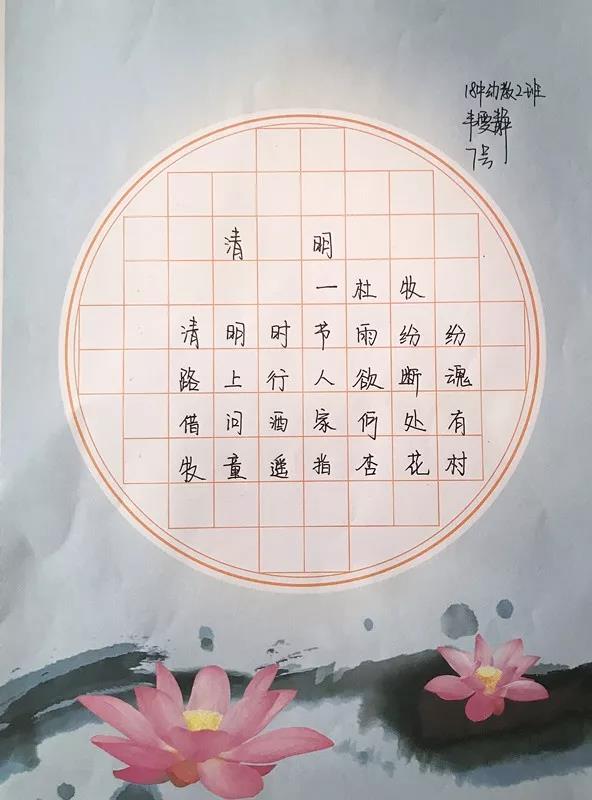 18中幼教2班
韦要静
7号
清明
一杜牧
清明时节雨纷纷
路上行人欲断魂
借问酒家何处有
牧童遥指杏花村